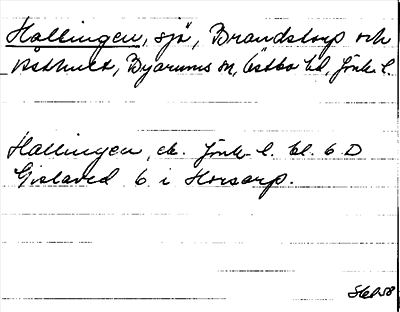 Hallingen, sjö, Brandstorp och
Båthult, Byarums sn, Östbo hd, Jönk. l.
Hallingen, ek. Jönk. l. bl. 6 D
Gislaved 6 i Horsarp.